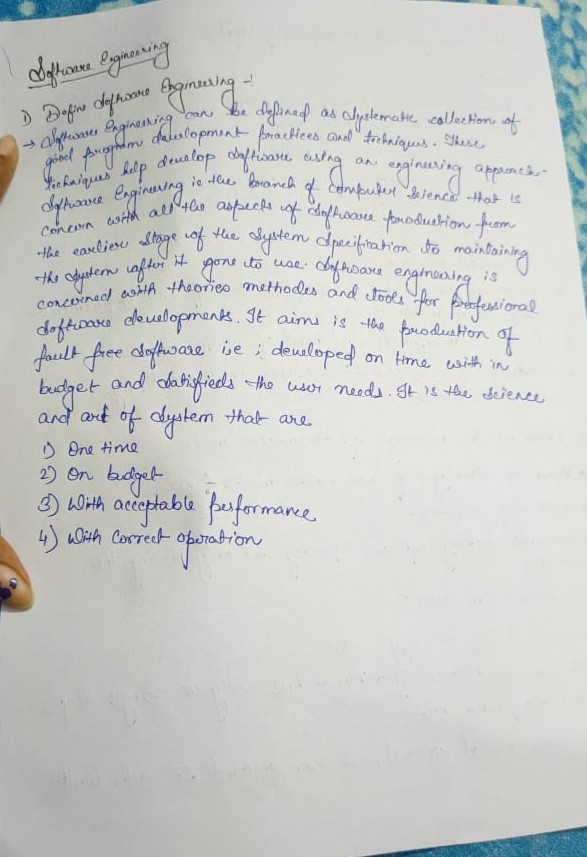 Software Engineering
1) Define Software Engineering -:
→ Software Engineering can be defined as systematic collection of
good program development practices and techniques. These
techniques help develop software using an engineering approach.
Software Engineering is the branch of computer science that is
concern with all the aspects of software production from
the earlier stage of the system specification to maintaining
the system after it gone to use. Software engineering is
concerned with theories methodes and tools for professional
software developments. It aims is the production of
fault free software i.e ; developed on time with in
budget and satisfieds the user needs. It is the science
and art of system that are
1) One time
2) On budget
3) With acceptable performance
4) With correct operation